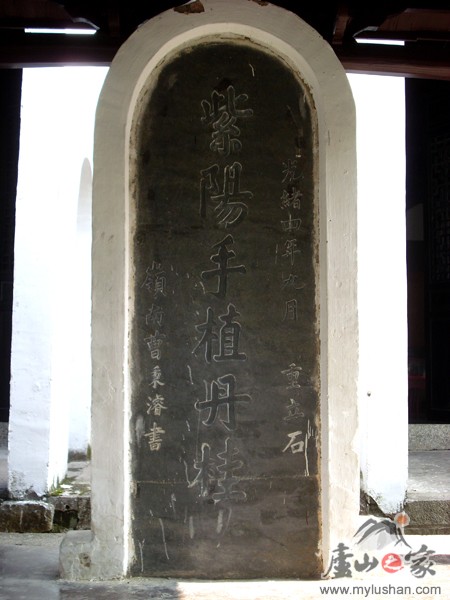 光緒十年九月 重立石
紫陽手植丹桂
嶺南曹秉濬書
廬山之家
www.mylushan.com